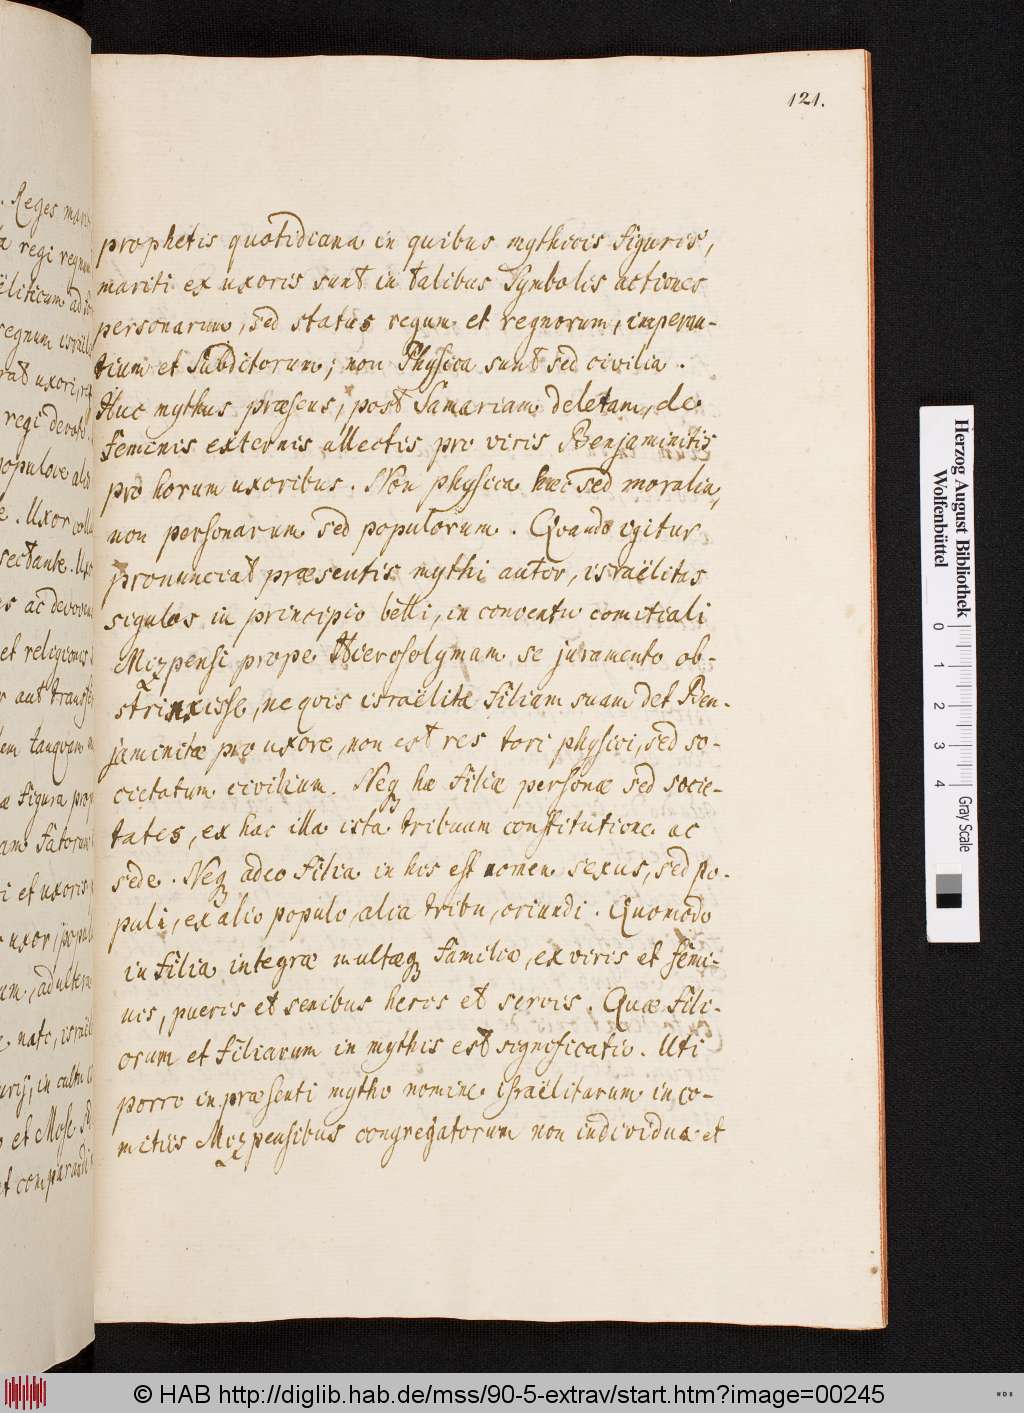 121.
prophetis quotidiana in quibus mythicis figuris,
mariti ex uxoris sunt in talibus Symbolis actiones
personarum, sed status regum et regnorum, imperan-
tium et subditorum; non Physica sunt sed civilia.
Huc mythus præsens, post Samariam deletam, de
femenis externis allectis pro viris Benjaminitis
pro horum uxoribus. Non physica hæc sed moralia,
non personarum sed populorum. Quando igitur
pronunciat præsentis mythi autor, israëlitas
sigulos in principio belli, in conventu comitiali
Mizpensi prope Hierosolymam se juramento ob-
strinxisse, ne qvis israëlita filiam suam det Ben-
jaminitæ pro uxore, non est res tori physici, sed so-
cietatum civilium. Neq hæ filiæ personæ sed socie-
tates, ex hac illa ista tribuum constitutione ac
sede. Neq adeo filia in his est nomen sexus, sed po-
puli, ex alio populo, alia tribu, oriundi. Quomodo
in filia integræ multæq familiæ, ex viris et femi-
nis, pueris et senibus heris et servis. Quæ fili-
orum et filiarum in mythis est significatio. Uti
porro in præsenti mytho nomine israëlitarum in co-
mitiis Mizpensibus congregatorum non individua et
. Reges
regi
regnum
uxori,
regi
. Uxor
sectante.
ac
et religiones
aut
tanqvam
figura
et uxoris
uxor,
nato,
in cultu
et Mose
Herzog August Bibliothek
Wolfenbüttel
0 1 2 3 4
Gray Scale
© HAB http://diglib.hab.de/mss/90-5-extrav/start.htm?image=00245